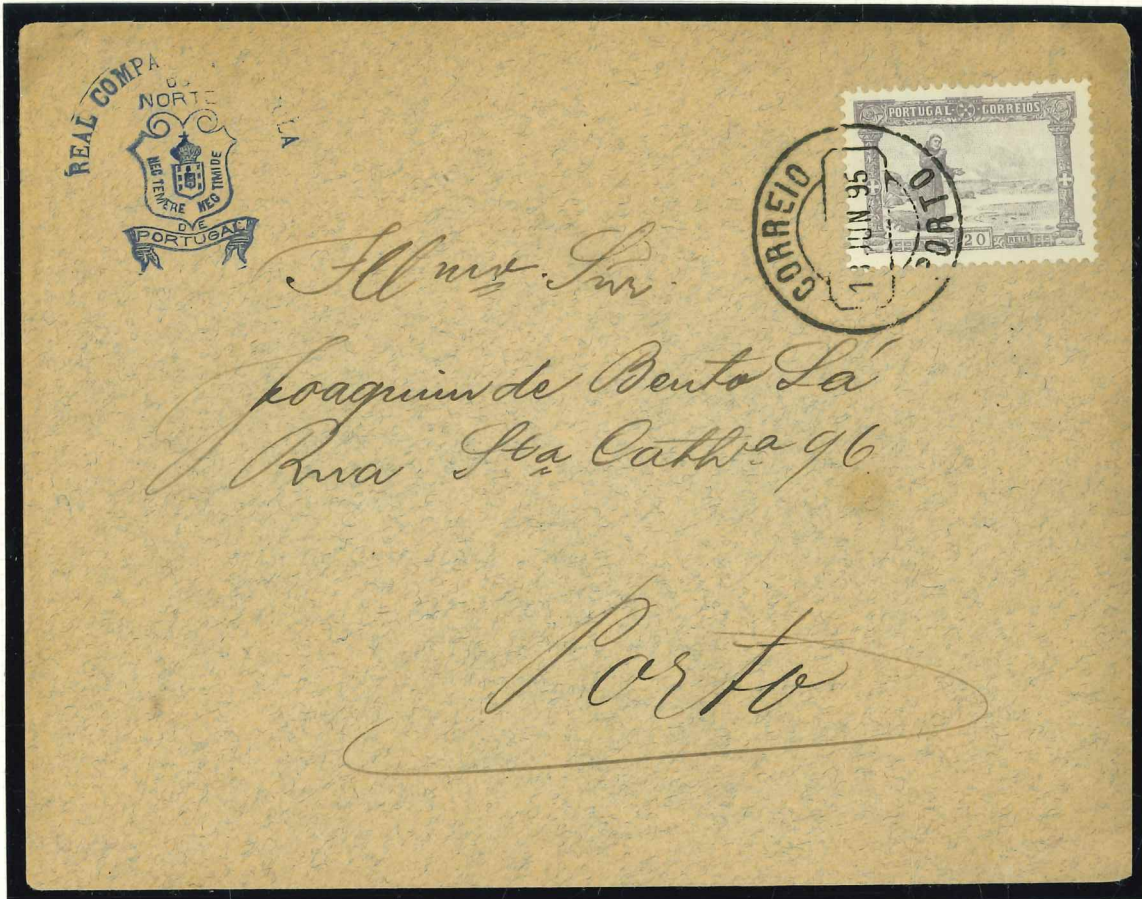 REAL COMPA
NORTE
NEC TEMERE NEC TIMIDE
DE
PORTUGAL
PORTUGAL CORREIOS
20 REIS
CORREIO
JUN 95
PORTO
Illmo. Snr.
Joaquim de Bento Sá
Rua Sta Cathna 96
Porto